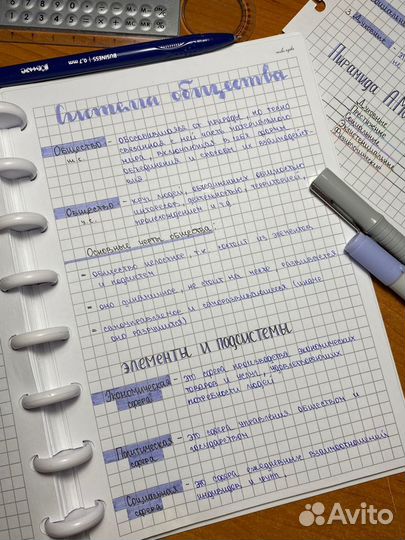 BUSINESS 0,7 mm
Система общества
Общество - обособившаяся от природы, но тесно
ш.с. связанная с ней часть материального
мира, включающая в себя формы
объединения и способы их взаимодейст-
вия
Общество - круг людей, объединённых общностью
у.с. интересов, деятельностью, территорией,
происхождением и тд
Основные черты общества:
- общество целостное, т.к. состоит из элементов
и подсистем
- оно динамичное, не стоит на месте, развивается
- самоуправляемое и саморазвивающееся (иначе
оно разрушится)
ЭЛЕМЕНТЫ И ПОДСИСТЕМЫ
Экономическая - это сфера производства экономических
сфера товаров и услуг, удовлетворяющих
потребности людей
Политическая - это сфера управления обществом и
сфера государством
Социальная - это сфера ежедневных взаимоотношений
сфера индивидов и групп,
3.
Пирамида
Avito